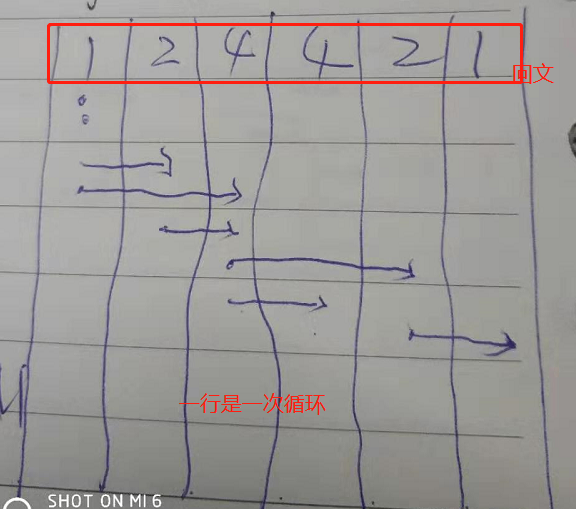 1 2 4 4 2 1
回文
一行是一次循环
SHOT ON MI 6